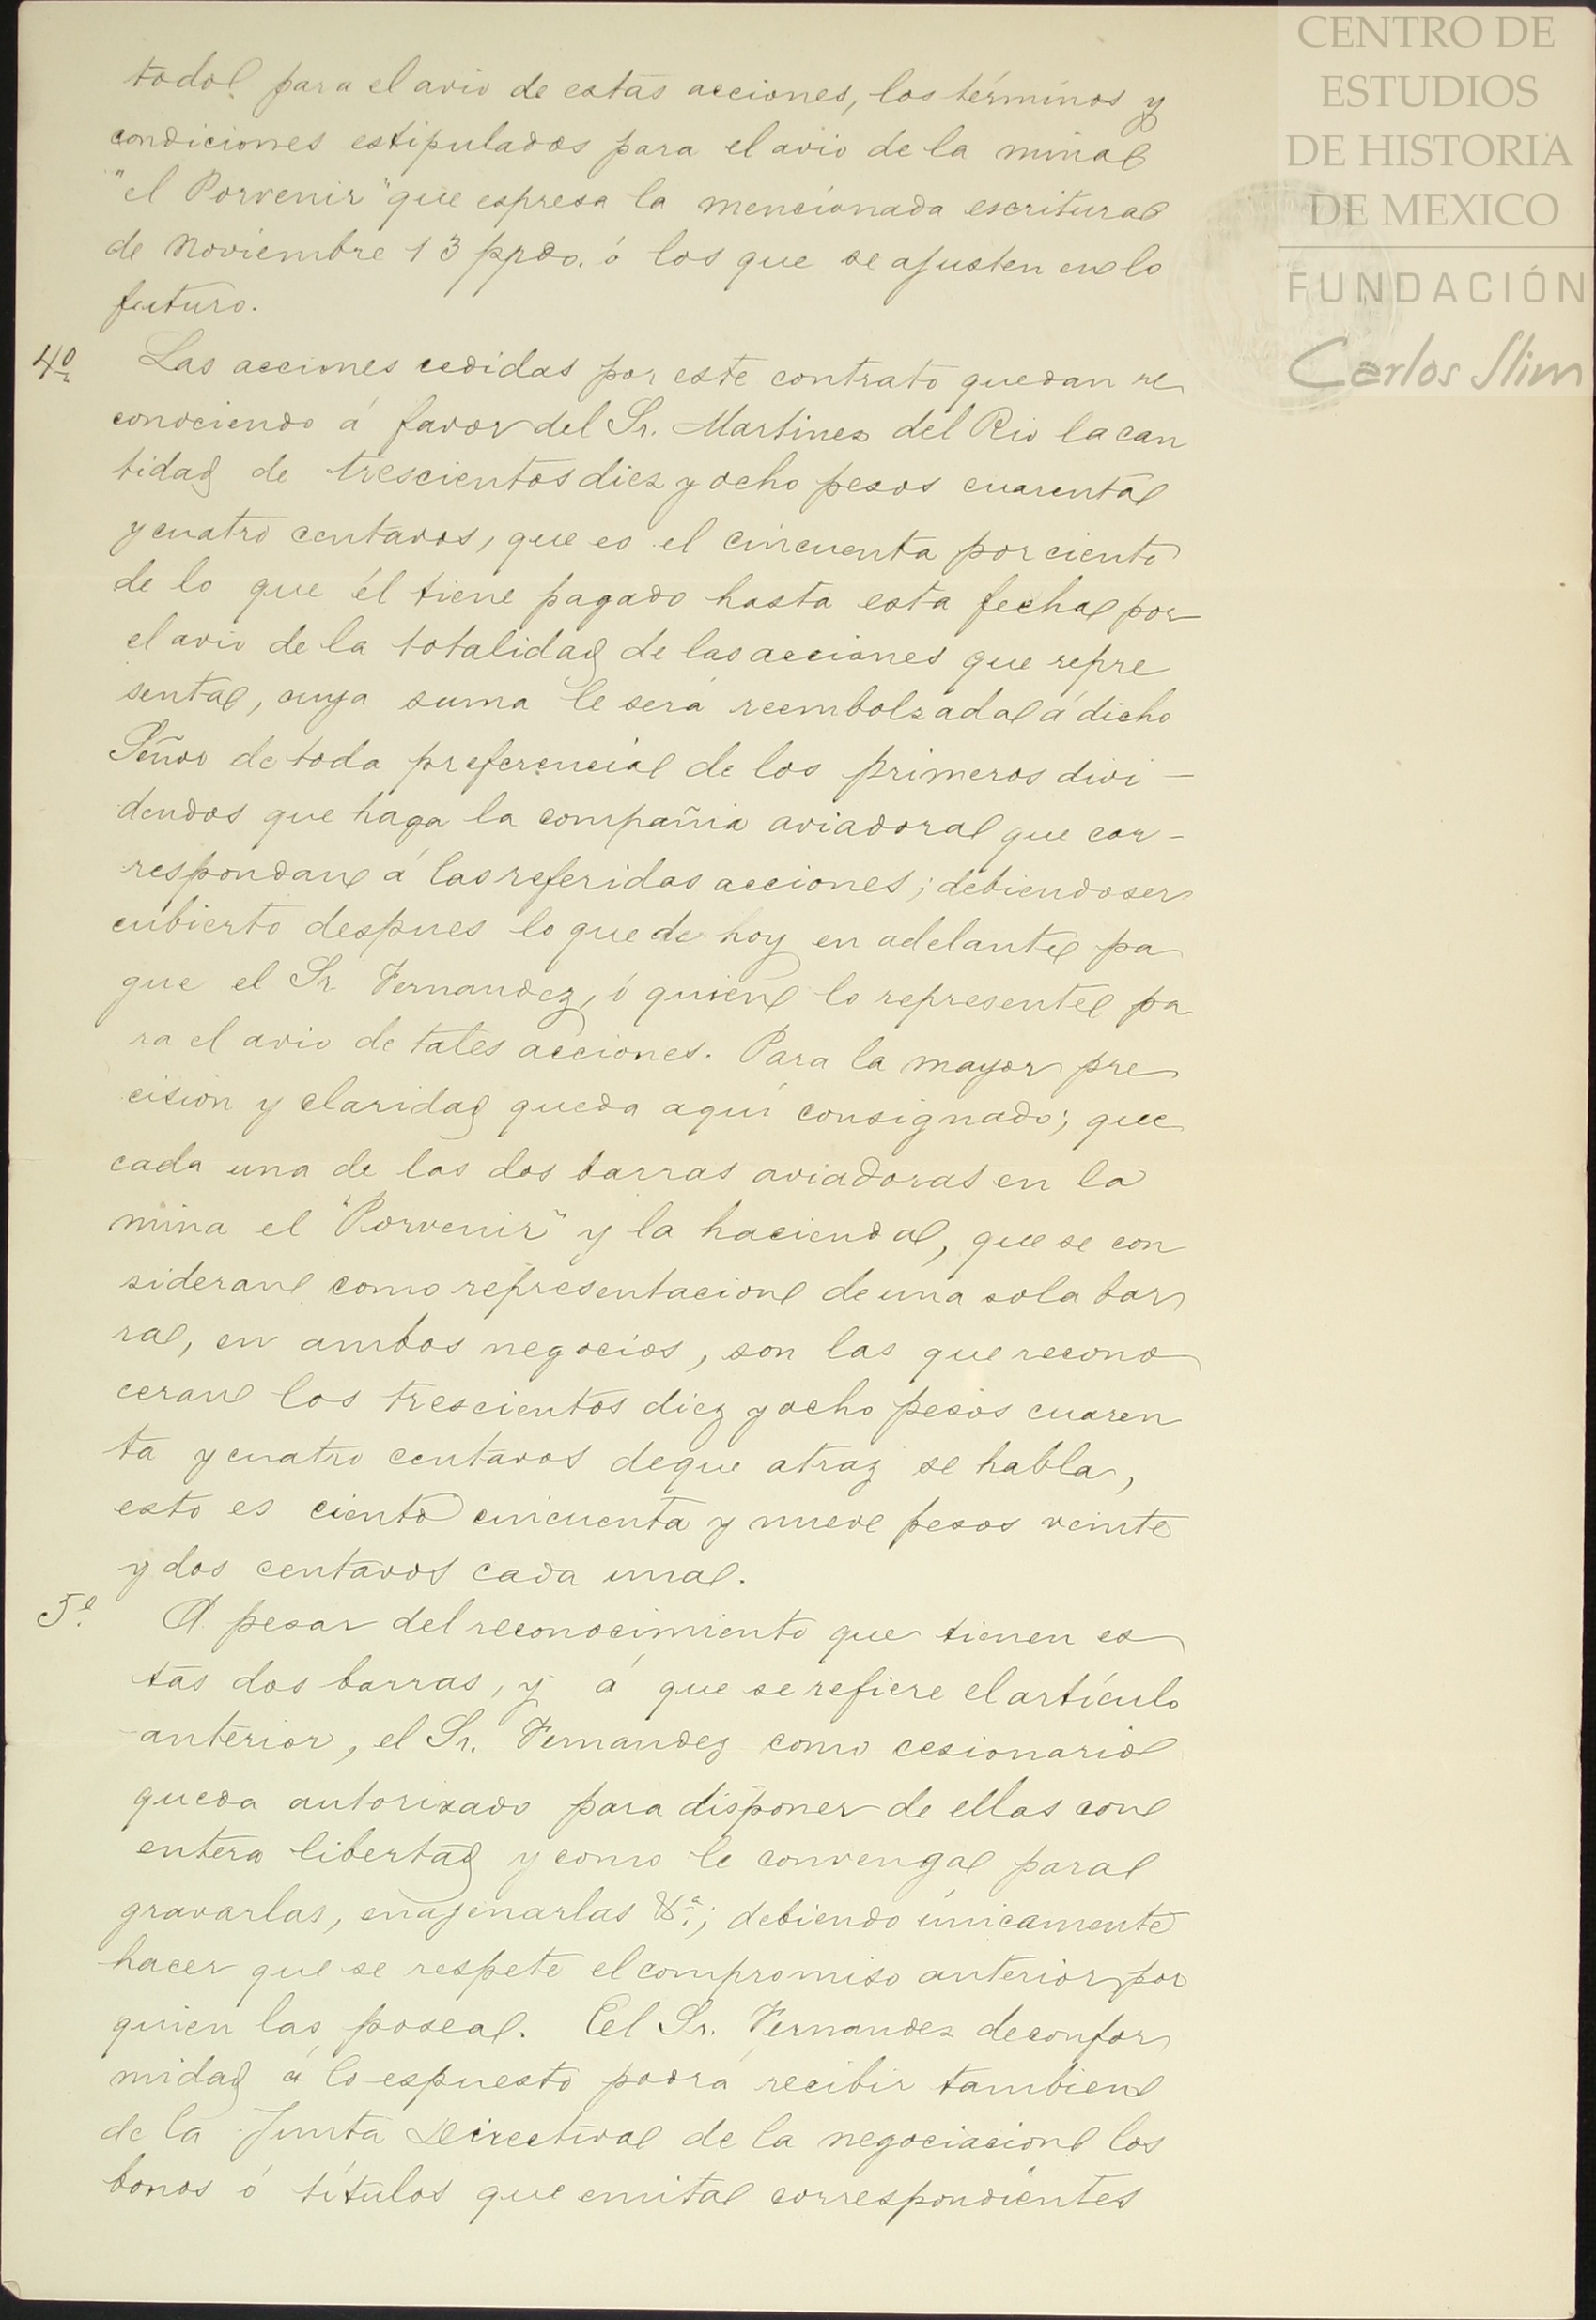 CENTRO DE
ESTUDIOS
DE HISTORIA
DE MEXICO
FUNDACIÓN
Carlos Slim
todo para el avio de estas acciones, los términos y
condiciones estipulados para el avio de la mina
"el Porvenir" que espresa la mencionada escritura
de Noviembre 13 ppdo. ó los que se ajusten en lo
futuro.
4º Las acciones cedidas por este contrato quedan re
conociendo á favor del Sr. Martinez del Rio la can
tidad de trescientos diez y ocho pesos cuarenta
y cuatro centavos, que es el cincuenta por ciento
de lo que él tiene pagado hasta esta fecha por
el avio de la totalidad de las acciones que repre
senta, cuya suma le será reembolzada á dicho
Señor de toda preferencia de los primeros divi-
dendos que haga la compañia aviadora que cor-
respondan á las referidas acciones; debiendo ser
cubierto despues lo que de hoy en adelante pa
gue el Sr. Fernandez, ó quien lo represente pa
ra el avio de tales acciones. Para la mayor pre
cision y claridad queda aquí consignado; que
cada una de las dos barras aviadoras en la
mina el "Porvenir" y la hacienda, que se con
sideran como representacion de una sola bar
ra, en ambos negocios, son las que recono
ceran los trescientos diez y ocho pesos cuaren
ta y cuatro centavos de que atraz se habla,
esto es ciento cincuenta y nueve pesos veinte
y dos centavos cada una.
5º. A pesar del reconocimiento que tienen es
tas dos barras, y á que se refiere el artículo
anterior, el Sr. Fernandez como cesionario
queda autorizado para disponer de ellas con
entera libertad y como le convenga para
gravarlas, enagenarlas &ª.; debiendo únicamente
hacer que se respete el compromiso anterior por
quien las posea. El Sr. Fernandez de confor
midad á lo espuesto podrá recibir tambien
de la Junta Directiva de la negociacion los
bonos ó títulos que emita correspondientes